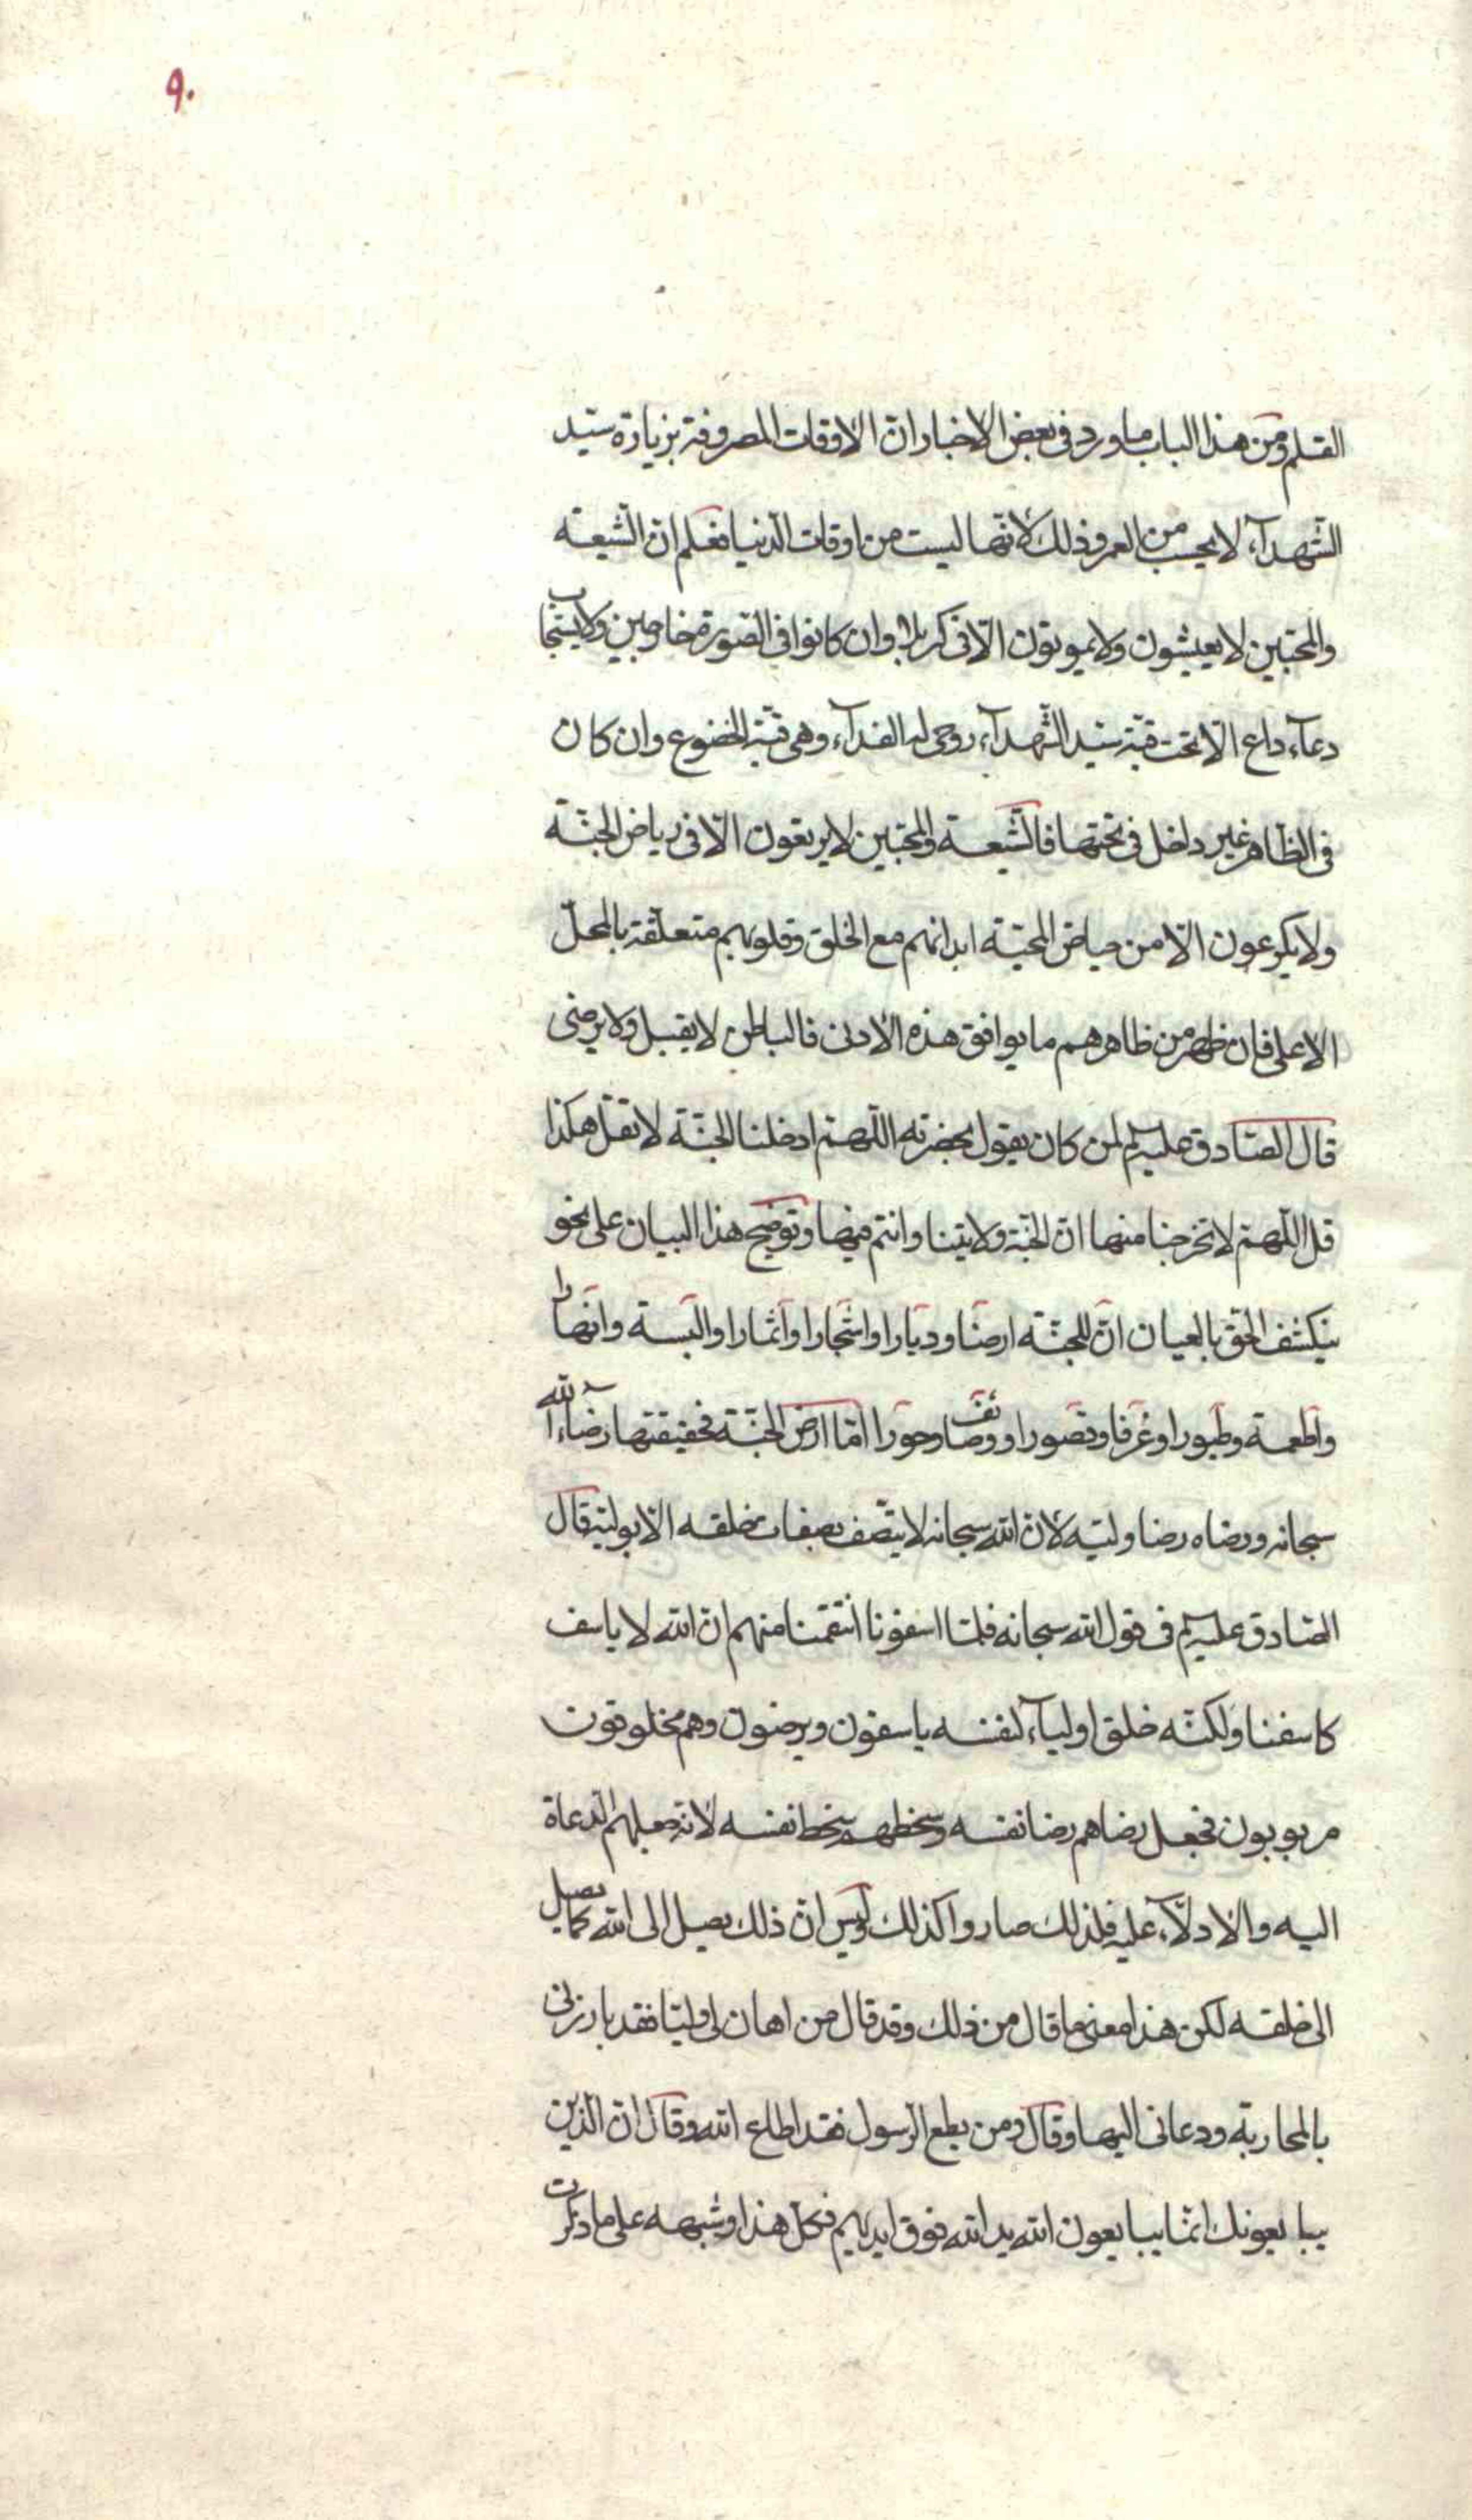 ٩٠
القلم ومن هذا الباب ما ورد فى بعض الاخبار انّ الاوقات المصروفة بزيارة سيّد
الشّهدآء لا يحسب من العمر وذلك لانّها ليست من اوقات الدّنيا فعلم انّ الشّيعة
والمحبّين لا يعيشون ولا يموتون الّا فى كربلا وان كانوا فى الصّورة خارجين ولا يستجاب
دعآء داع الّا تحت قبّة سيّد الشّهدآء روحى له الفدآء وهى قبّة الخضوع وان كان
فى الظّاهر غير داخل فى تحتها فالشّيعة والمحبّين لا يرتعون الّا فى رياض الجنّة
ولا يكرعون الّا من حياض المحبّة ابدانهم مع الخلق وقلوبهم متعلّقة بالمحلّ
الاعلى فان ظهر من ظاهرهم ما يوافق هذه الادنى فالباطن لا يقبل ولا يرضى
قال الصّادق عليه‌السلم لمن كان يقول بحضرته اللّهمّ ادخلنا الجنّة لا تقل هكذا
قل اللّهمّ لا تخرجنا منها انّ الجنّة ولايتنا وانتم فيها وتوضيح هذا البيان على نحو
ينكشف الحقّ بالعيان انّ للجنّة ارضا وديارا واشجارا واثمارا والبسة وانهارا
واطعمة وطيورا وغرفا وقصورا ووصائف وحورا امّا ارض الجنّة فحقيقتها رضآء الله
سبحانه ورضاه رضا وليّه لانّ الله سبحانه لا يتّصف بصفات خلقه الّا بوليّه قال
الصّادق عليه‌السلم فى قول الله سبحانه فلمّا اسفونا انتقمنا منهم انّ الله لا ياسف
كاسفنا ولكنّه خلق اوليآء لنفسه ياسفون ويرضون وهم مخلوقون
مربوبون فجعل رضاهم رضا نفسه وسخطهم سخط نفسه لانّه جعلهم الدعاة
اليه والادلّآء عليه فلذلك صاروا كذلك وليس انّ ذلك يصل الى الله كما يصل
الى خلقه لكن هذا معنى ما قال من ذلك وقد قال من اهان لى وليّا فقد بارزنى
بالمحاربة ودعانى اليها وقال ومن يطع الرّسول فقد اطاع الله وقال انّ الّذين
يبايعونك انّما يبايعون الله يد الله فوق ايديهم فكلّ هذا وشبهه على ما ذكرت